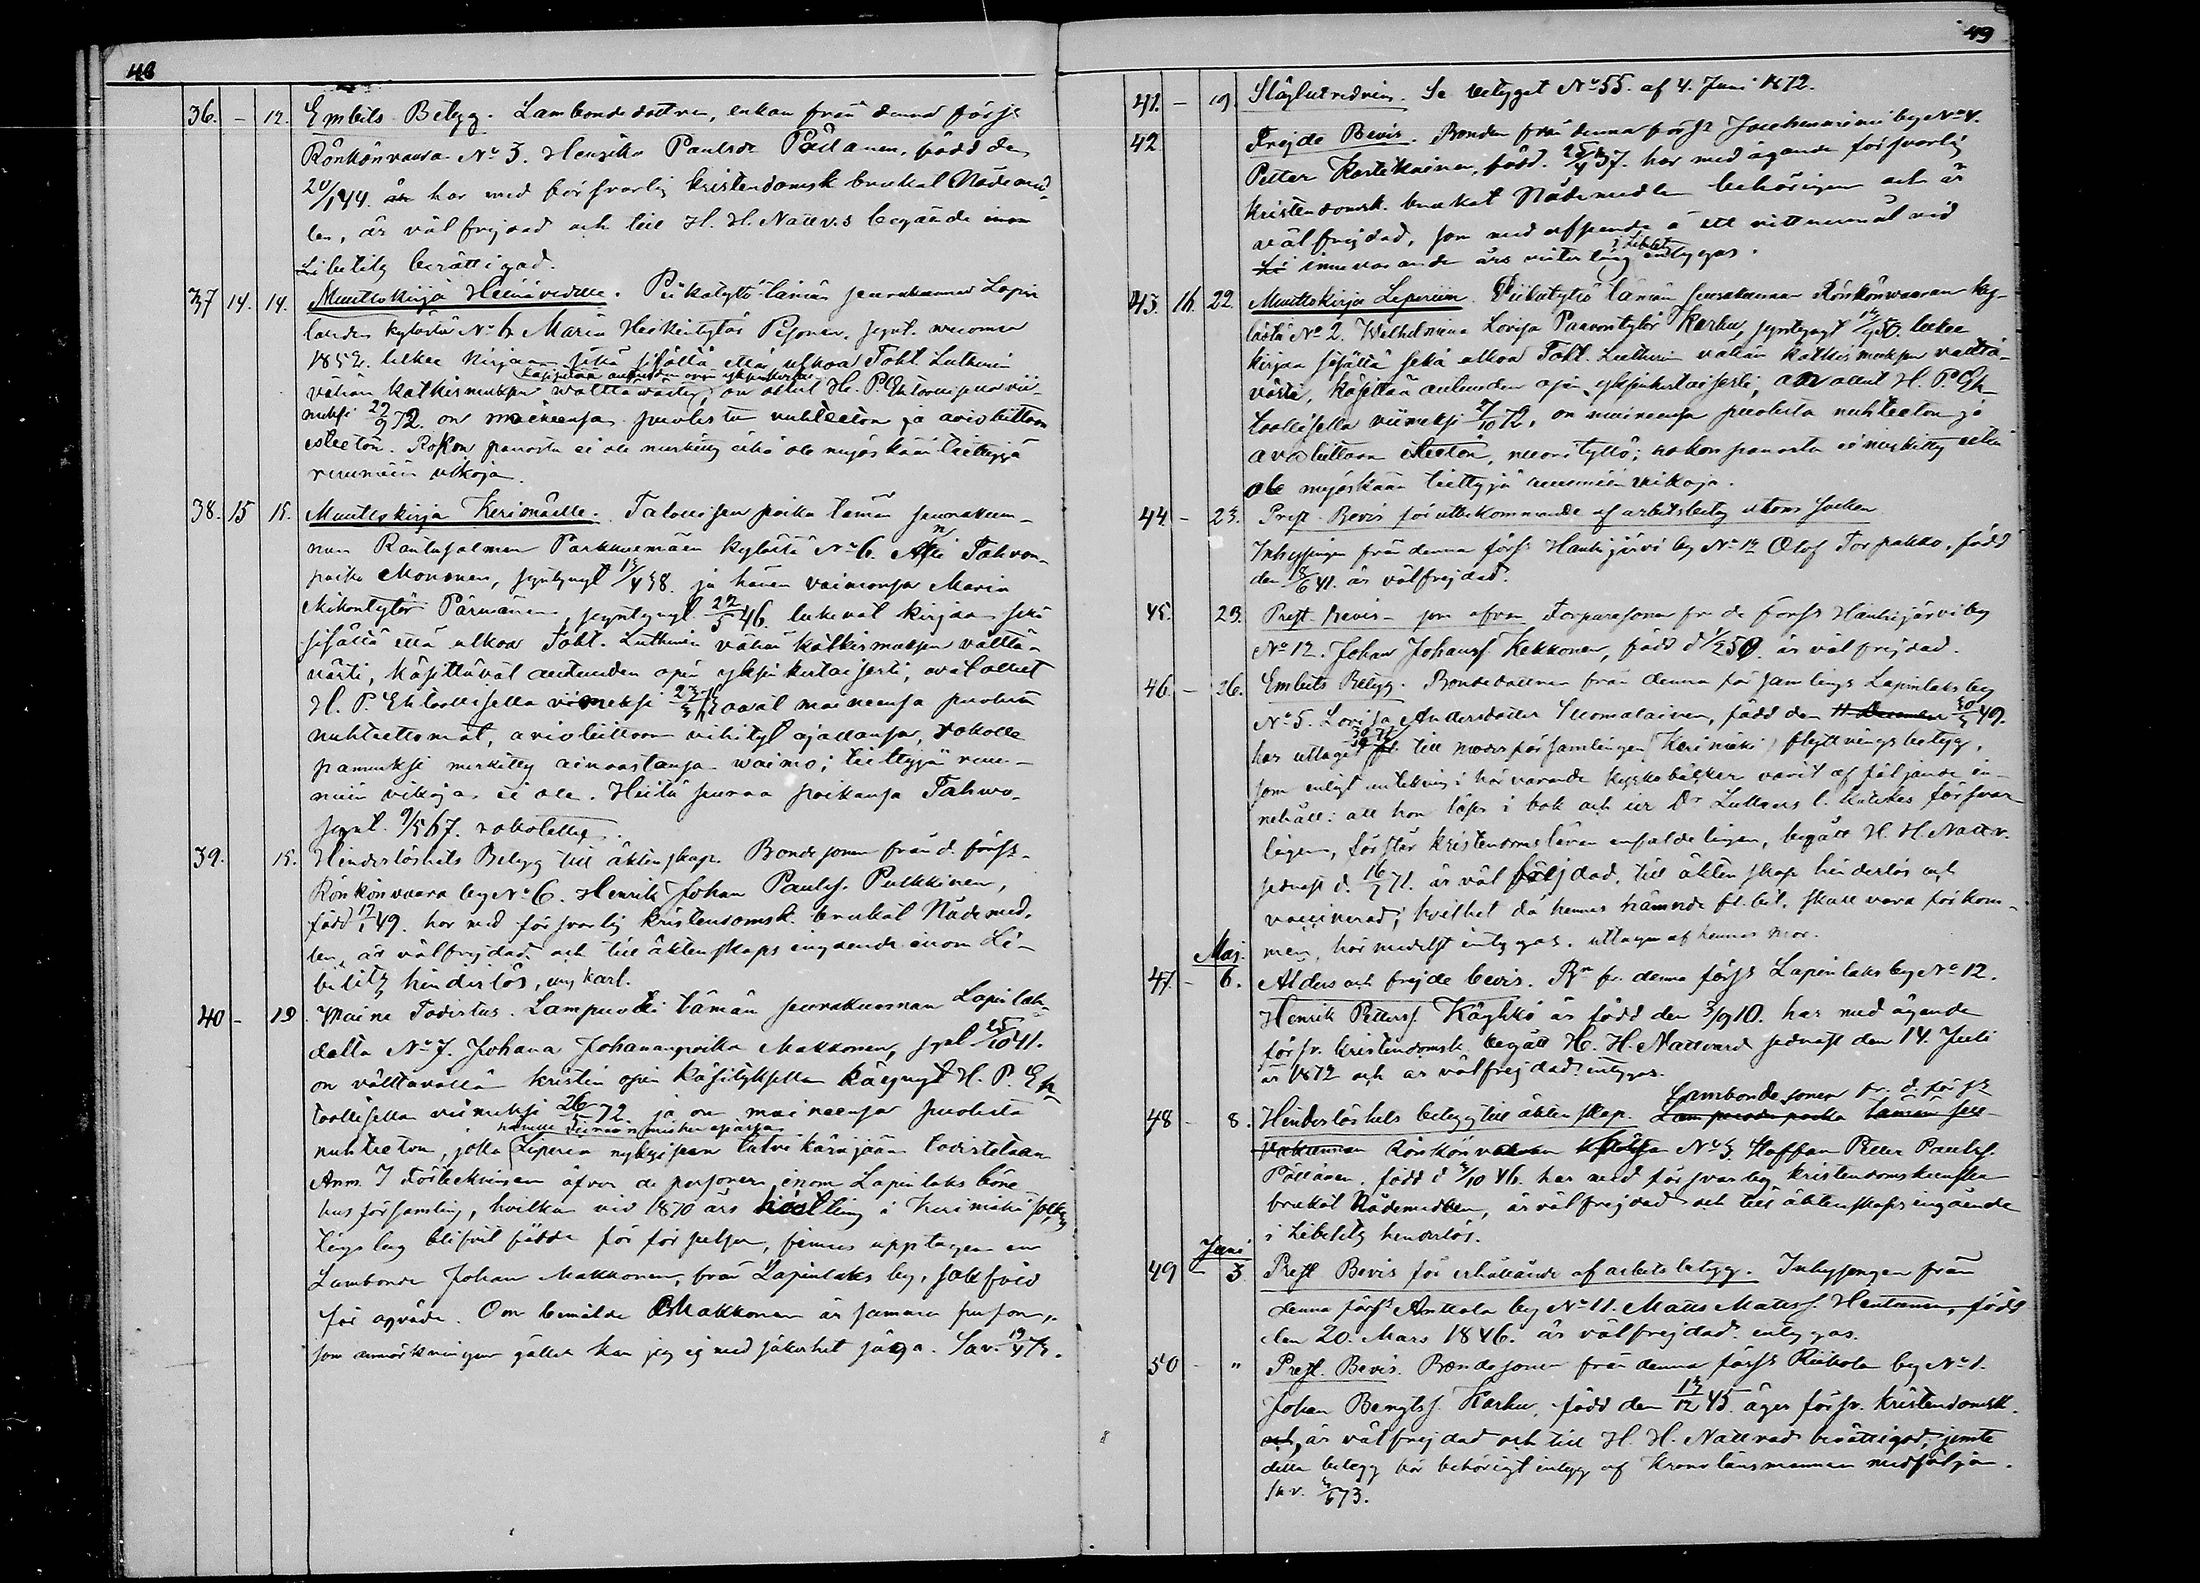 48
36. - 12. Embets Betyg. Lambondedottren, enkan från denna förs:s
Rönkönvaara No 3. Henrika Paulsdr Pöllänen, född den
20/1 44. har med försvarlig kristendomsk. brukat Nådemed-
len, är väl frejdad och till H. H. Nattv:s begående inom
Libelitz berättigad.
37 14. 14. Muuttokirja Heinävedelle. Piikatyttö tämän seurakunnan Lapin
lahden kylästä No 6 Maria Heikintytär Pesonen, synt. vuonna
1852. lukee kirjaa sekä sisältä että ulkoa Toht. Lutherin
käsittää autuuden opin yksinkertais.
vähän katkismuksen välttävästi, on ollut H. P. Ehtoolisella vii-
meksi 22/9 72. on maineensa puolesta nuhteeton ja avioliittoon
esteetön. Rokon panosta ei ole merkitty eikä ole myöskään tiettyjä
ruumiin vikoja.
38. 15 15. Muuttokirja Kerimäelle. Talollisen poika tämän seurakun-
nan Rautasalmen Parkkuemäen kylästä No 6. Antti Tahvon-
poika Mononen, syntynyt 13/4 38. ja hänen vaimonsa Maria
Mikontytär Pärnänen, syntynyt 22/5 46. lukevat kirjaa sekä
sisältä että ulkoa Toht. Lutherin vähän katkismuksen välttä-
västi, käsittävät autuuden opin yksinkertaisesti, ovat olleet
H. P. Ehtoollisella viimeksi 23/3 73 ovat maineensa puolesta
nuhteettomat, avioliittoon vihityt ajallansa, rokolle
panneksi merkitty ainoastansa vaimo; tiettyjä ruu-
miin vikoja ei ole. Heitä seuraa poikansa Tahvo
synt. 9/5 67. rokotettu.
39. 15. Hinderlöshets Betyg till äktenskap. Bondesonen från d. förs:s
Rönkönvaara by No 6. Henrik Johan Paulss. Pulkkinen,
född 12/1 49. har med försvarlig kristendomsk. brukat Nådemed-
len, är välfrejdad och till äktenskaps ingående inom Li-
belitz hinderlös, ung karl.
40 - 19. Maine Todistus. Lampuoti tämän seurakunnan Lapinlah-
delta No 7. Johana Johananpoika Makkonen, synt 25/10 41.
on välttävällä kristin opin käsityksellä käynyt H. P. Eh-
toollisella viimeksi 26/5 72. ja on maineensa puolesta
nuhteeton, jotka Liperin nykyisen talvikäräjään todistetaan
Anm. I Förteckningen öfver de personer inom Lapinlaks böne
hus församling, hvilka vid 1870 års hösting i Kerimäki sockens
tingslag blifvit fälde för förseelser, finnes upptagen en
Lambonde Johan Makkonen, från Lapinlaks by, sakfälld
för oqväde. Om bemälde Makkonen är samma person,
som anmärkningen gäller kan jag ej med säkerhet säga. Sav. 19/4 73.
49
41. - 19. Släglutredning. Se betyget No 55. af 4. Juni 1872.
42 Frejde Bevis. Bonden från denna förs:s Jouhenniemi by No 4.
Petter Kostiainen, född 25/4 37. har med ägande försvarlig
kristendomsk. brukat Nådemedlen behörigen och är
välfrejdad, som med afseende å ett vittnesmål vid
i Libelitz
innevarande års vinterting intygas.
43. 16. 22. Muuttokirja Liperiin. Piikatyttö tämän seurakunnan Rönkönvaaran ky-
lästä No 2. Wilhelmina Lovisa Paavontytär Karhu, syntynyt lukee
kirjaa sisältä sekä ulkoa Toht. Lutherin vähän katkismuksen välttä-
västi, käsittää autuuden opin yksinkertaisesti, on ollut H. P. Eh-
toollisella viimeksi 27/10 72, on maineensa puolesta nuhteeton ja
avioliittoon esteetön, neonstyttö; rokon panosta ei merkitty eikä
ole myöskään tiettyjä ruumiin vikoja.
44 - 23. Prest Bevis för utbekommande af arbetsbetyg utom socken
Inhysingen från denna förs:s Haukijärvi by No 12 Olof Torpakko, född
den 18/6 41. är välfrejdad.
45. 23. Prest Bevis - som ofvan Torparesonen fr. de. förs:s Haukijärvi by
No 12. Johan Johanss. Kekkonen, född d 1/2 50. är välfrejdad.
46 - 26. Embets Betyg. Bondedottren från denna församlings Lapinlaks by
No 5. Lovisa Andersdotter Suomalainen, född den 11 December 30/3 49.
har uttagit till moderförsamlingen (Kerimäki) flyttningsbetyg,
som enligt anteckning i härvarande kyrkoböcker varit af följande in-
nehåll: att hon läser i bok och ur Dr Luthers l. Katekes försvar
ligen, förstår kristendomsläran enfaldeligen, begått H. H. Nattv.
sednast d. 16/7 71. är väl frejdad, till äktenskap hinderlös och
vaccinerad; hvilket då hennes nämnde fl.bet. skall vara förkom-
men, härmedelst intygas. uttagen af hennes mor.
Maj.
47. - 6. Alders och frejde bevis. Bn fr. denna förs:s Lapinlaks by No 12.
Henrik Petterss. Käyhkö är född den 3/9 10. har med ägande
försv. kristendomsk. begått H. H. Nattvard sednast den 14. Juli
år 1872 och är välfrejdad intygas.
48 - 8. Hinderlöshets betyg till äktenskap. Lambondesonen fr. d. förs:s
Lampuodin poika tämän seu-
rakunnan Rönkönvaaran No 3. Staffan Petter Paulss.
Pöllänen, född d 3/10 46. har med försvarlig kristendomskunskap
brukat Nådemedlen, är välfrejdad och till äktenskaps ingående
i Libelitz hinderlös.
Juni
49 - 3 Prest Bevis för erhållande af arbetsbetyg. Inhysingen från
denna förs:s Anttola by No 11. Matts Matss. Hentunen, född
den 20. Mars 1846. är välfrejdad intygas.
50 - " Prest. Bevis. Bondesonen från denna förs:s Ruokola by No 1.
Johan Bengtss. Karhu, född den 13/12 45. äger försv. kristendomsk.
och är välfrejdad och till H. H. Nattvard berättigad; jemte
detta betyg bör behörigt intyg af Kronolänsmannen medfölja.
Sav. 3/6 73.